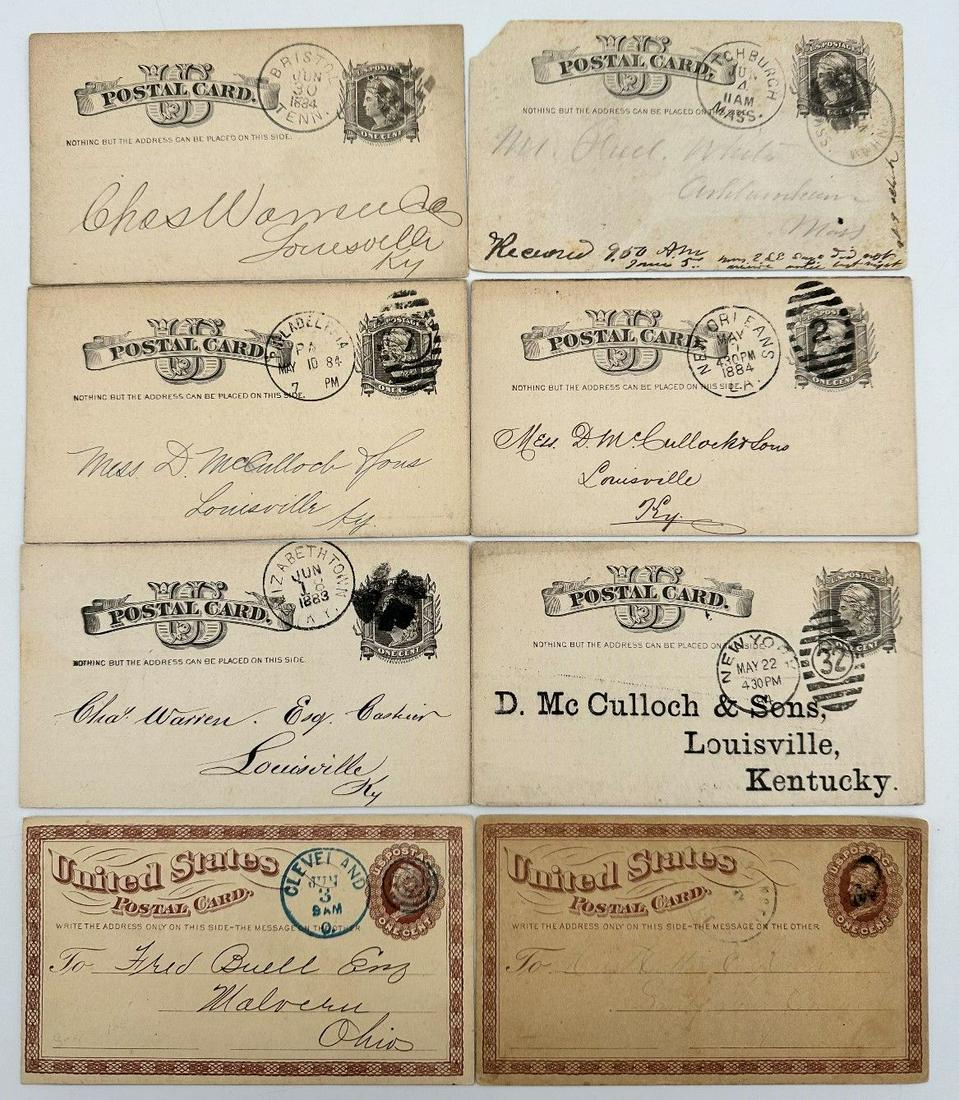 POSTAL CARD.
BRISTOL
JUN
30
1884
TENN.
U.S. POSTAGE
ONE CENT
NOTHING BUT THE ADDRESS CAN BE PLACED ON THIS SIDE.
Chas Warren
Louisville
Ky
POSTAL CARD.
TCHBURGH
4
11AM
MASS.
U.S. POSTAGE
NOTHING BUT THE ADDRESS CAN BE PLACED ON THIS SIDE.
Mr. White
Ashburnham
Mass
Received 9.50 A.M.
June 5
POSTAL CARD.
PHILADELPHIA
PA
MAY 10 84
7 PM
POSTAGE
ONE CENT
NOTHING BUT THE ADDRESS CAN BE PLACED ON THIS SIDE.
Mess D. McCulloch & Sons
Louisville
Ky
POSTAL CARD.
NEW ORLEANS
MAY
430PM
1884
LA.
2
ONE CENT
NOTHING BUT THE ADDRESS CAN BE PLACED ON THIS SIDE.
Mess. D. McCulloch & Sons
Louisville
Ky.
POSTAL CARD.
IZABETHTOWN
JUN
18
1883
KY.
ONE CENT
NOTHING BUT THE ADDRESS CAN BE PLACED ON THIS SIDE.
Chas. Warren. Esq. Cashier
Louisville
Ky
POSTAL CARD.
U.S. POSTAGE
NOTHING BUT THE ADDRESS CAN BE PLACED ON THIS SIDE.
NEW YORK
MAY 22
430PM
32
D. Mc Culloch & Sons,
Louisville,
Kentucky.
United States
POSTAL CARD.
CLEVELAND
JUN
3
9AM
O.
U.S. POSTAGE
ONE CENT
WRITE THE ADDRESS ONLY ON THIS SIDE–THE MESSAGE ON THE OTHER
To Fred Buell Esq
Malvern
Ohio
United States
POSTAL CARD.
U.S. POSTAGE
ONE CENT
WRITE THE ADDRESS ONLY ON THIS SIDE–THE MESSAGE ON THE OTHER
To